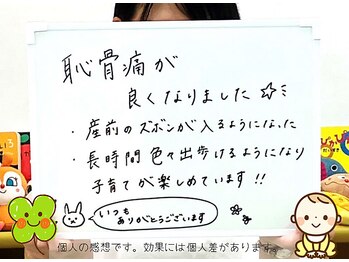 恥骨痛が
良くなりました☆ミ
・産前のズボンが入るようになった
・長時間色々出歩けるようになり
子育てが楽しめています!!
いつも
ありがとうございます
個人の感想です。効果には個人差があります。